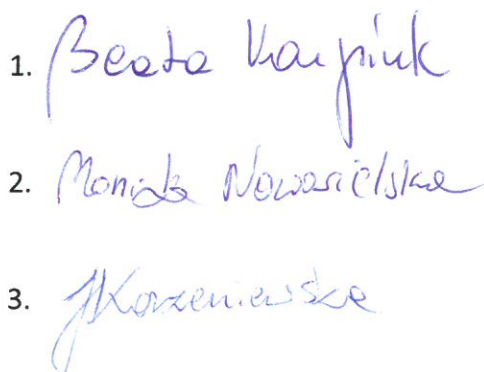 1. Beata Karpiuk
2. Monika Nowosielska
3. JKorzeniewska